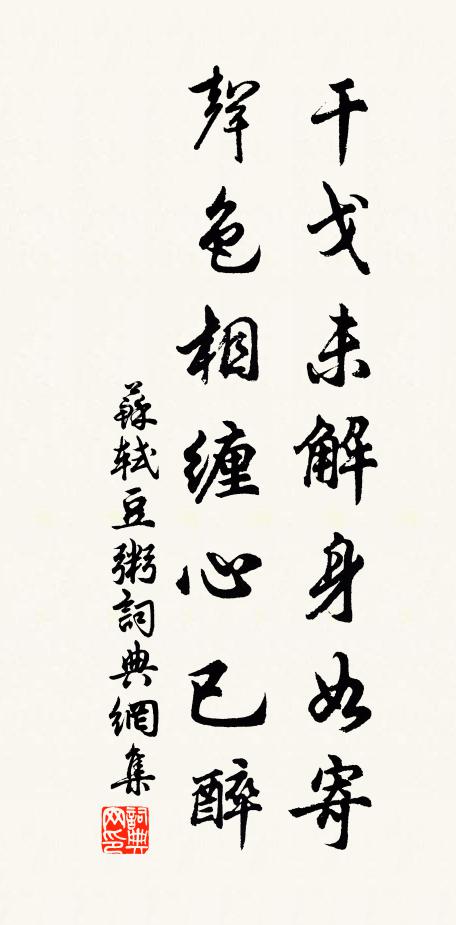 干戈未解身如寄
聲色相纏心已醉
蘇軾豆粥詞典網集
詞典
网印